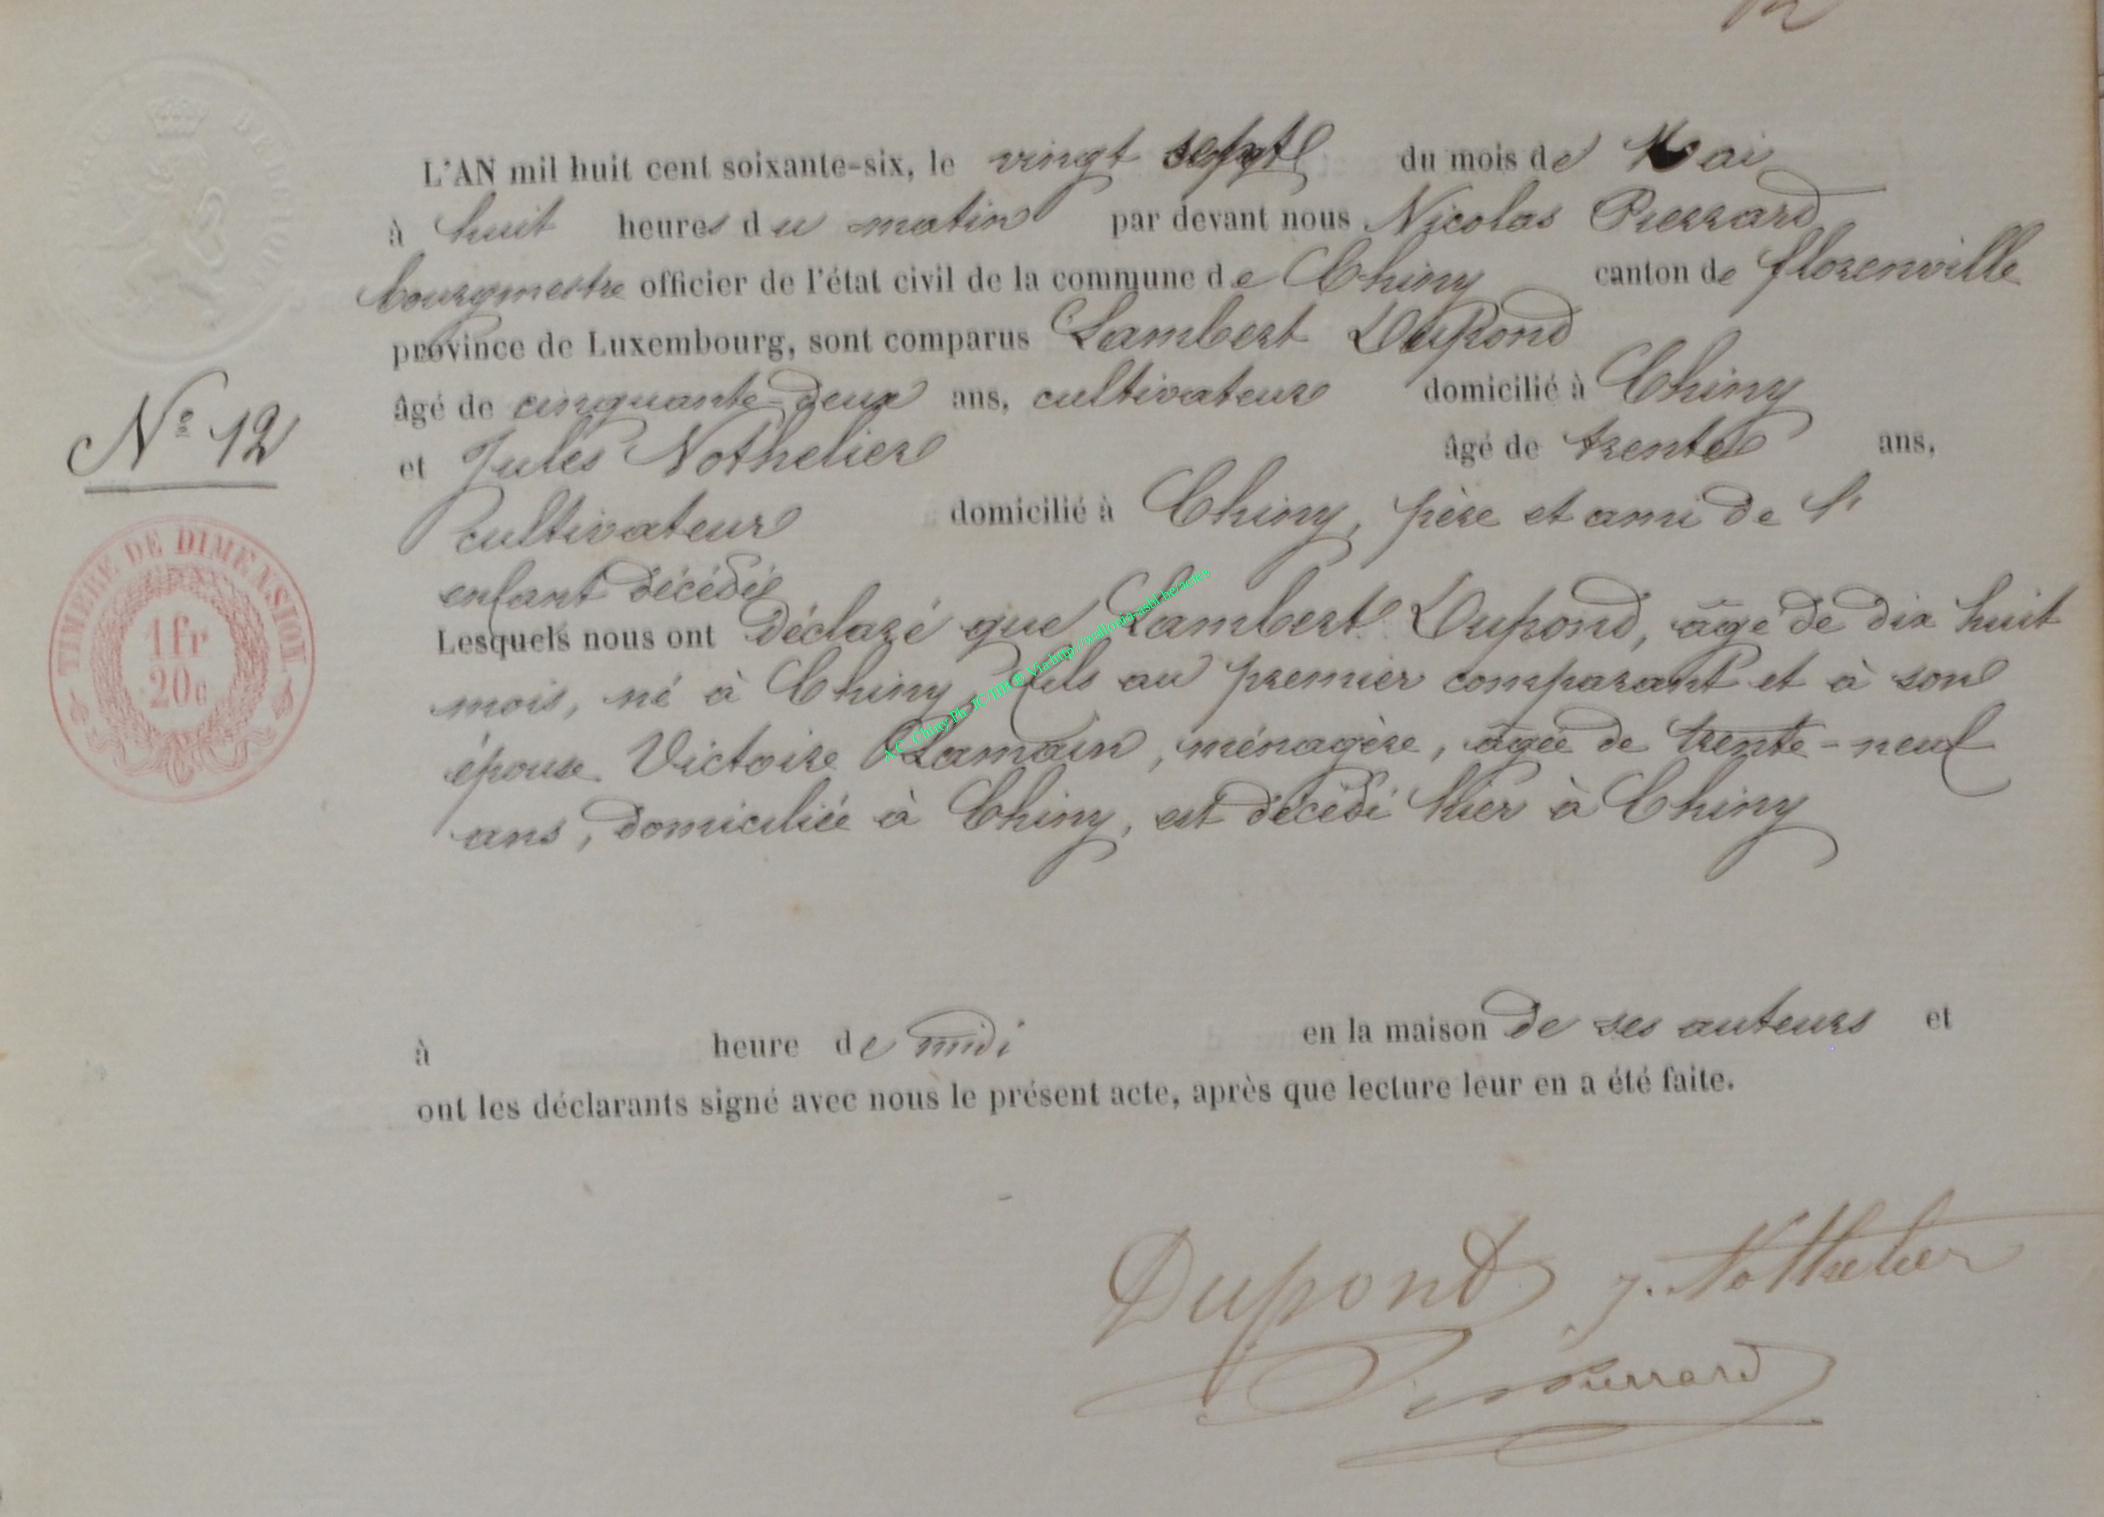 12
L'AN mil huit cent soixante-six, le vingt sept du mois de Mai
à huit heures du matin par devant nous Nicolas Pierrard
bourgmestre officier de l'état civil de la commune de Chiny canton de florenville
province de Luxembourg, sont comparus Lambert Dupond
âgé de cinquante-deux ans, cultivateur domicilié à Chiny
N° 12
et Jules Nothelier âgé de trente ans,
cultivateur domicilié à Chiny, père et ami de l'
enfant décédé
TIMBRE DE DIMENSION
1 fr
20c
Lesquels nous ont déclaré que Lambert Dupond, âgé de dix huit
mois, né à Chiny, fils au premier comparant et à son
épouse Victoire Lamain, ménagère, âgée de trente-neuf
ans, domiciliée à Chiny, est décédé hier à Chiny
à heure de midi en la maison de ses auteurs et
ont les déclarants signé avec nous le présent acte, après que lecture leur en a été faite.
Dupond J. Nothelier
Pierrard